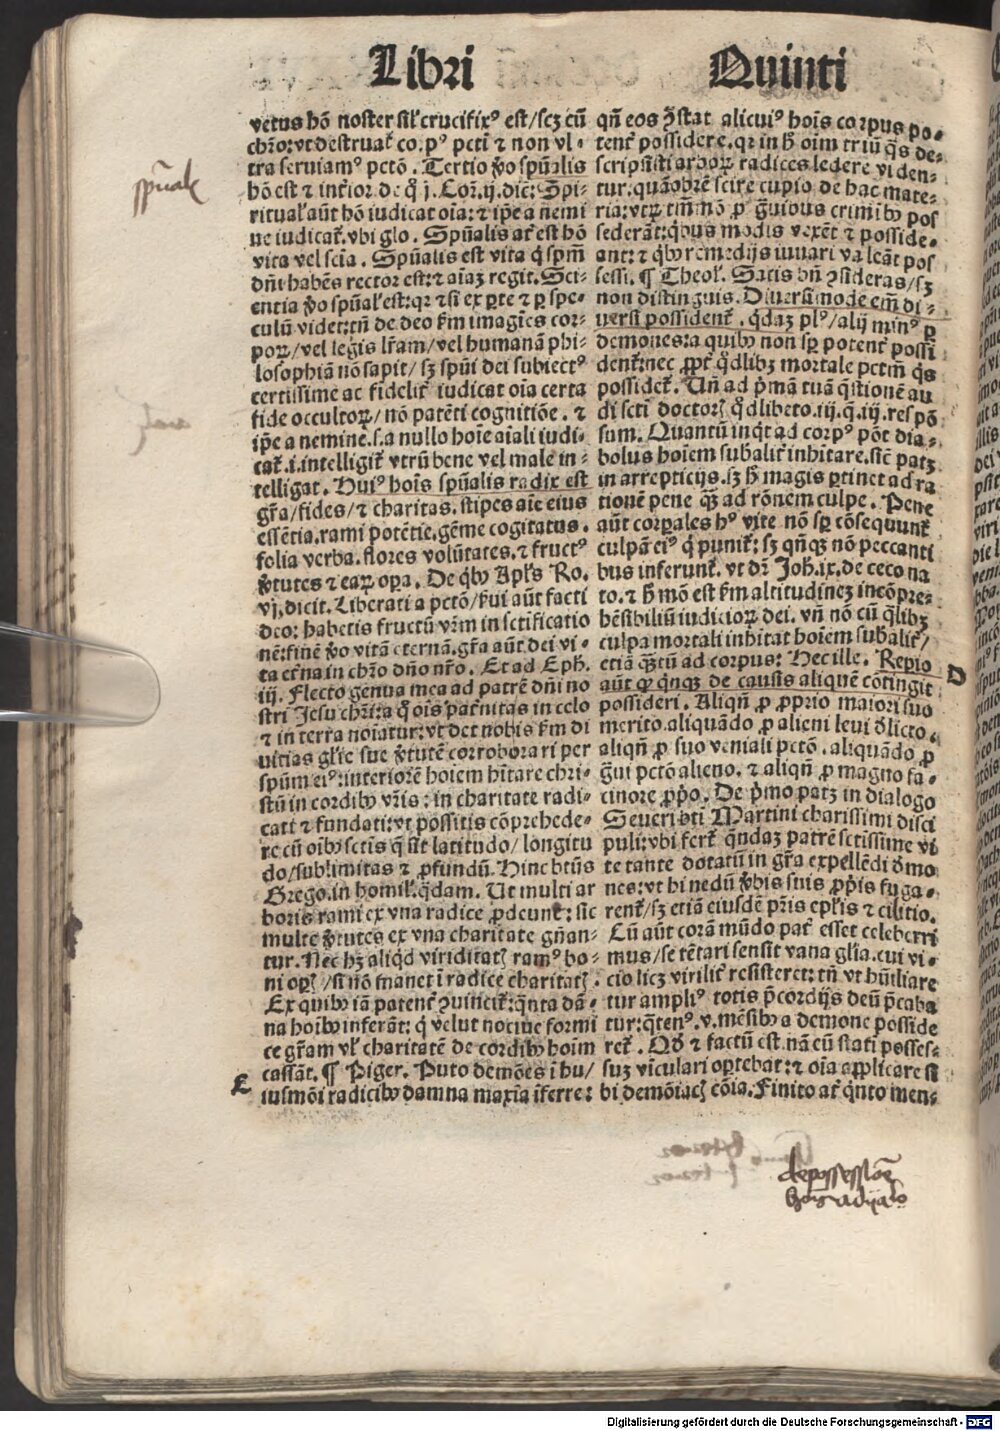 Libri Quinti
vetus hõ noster sił crucifixꝰ est/scȝ cũ
chr̃o: vt destruat̃ corpꝰ pctĩ ⁊ non vl-
tra seruiamꝰ pctõ. Tertio ꝟo spũalis
hõ est ⁊ inťior de q̃ j. Coꝝ. ij. dic̃: Spi-
ritual̃ aũt hõ iudicat oĩa: ⁊ ip̃e a nemi
ne iudicat̃. vbi glo. Spũalis at̃ est hõ
vita vel scĩa. Spũalis est vita q̃ spm̃
dñi habẽs rector est: ⁊ aĩaȝ regit. Sci-
entia ꝟo spũal̃ est: qꝛ ⁊ si ex ꝑte ⁊ ꝑ spe-
culũ videt: tñ de deo ẜm imagiẽs cor-
poꝝ/vel legis lr̃am/vel humanã phi-
losophiã nõ sapit/ sȝ spũi dei subiectꝰ
certissime ac fidelit̃ iudicat oĩa certa
fide occultoꝝ/nõ patẽti cognitiõe. ⁊
ip̃e a nemine. s. a nullo hoĩe aĩali iudi-
cat̃. i. intelligit̃ vtrũ bene vel male in-
telligat. Huiꝰ hoĩs spũalis radix est
gr̃a/fides/⁊ charitas. stipes aĩe eius
essẽtia. rami potẽtie. gẽme cogitatus.
folia verba. flores volũtates. ⁊ fructꝰ
ꝟtutes ⁊ eaꝝ oꝑa. De q̃bꝰ Apl̃s Ro.
vj. dicit. Liberati a pctõ/ẜui aũt facti
deo: habetis fructũ vr̃m in sctificatio
nẽ: finẽ ꝟo vitã eternã. gr̃a aũt dei vi-
ta et̃na in chr̃o dño nr̃o. Et ad Eph.
iij. Flecto genua mea ad patrẽ dñi no
stri Jesu chr̃i: a q̃ oĩs pat̃nitas in celo
⁊ in terra noĩatur: vt det nobis ẜm di
uitias gl̃ie sue ꝟtutẽ corroborari per
spũm eiꝰ: interiorẽ hoĩem hĩtare chri-
stũ in cordibꝰ vr̃is: in charitate radi-
cati ⁊ fundati: vt possitis cõprehẽde-
re cũ oĩbꝰ sctĩs q̃ sit latitudo/longitu
do/sublimitas ⁊ ꝓfundũ. Hinc btũs
Grego. in homil̃. q̃dam. Ut multi ar
boris rami ex vna radice ꝓdeunt̃: sic
multe ꝟtutes ex vna charitate gñan-
tur. Nec hȝ aliqd viriditatꝭ ramꝰ bo-
ni oꝑꝭ/si nõ manet ĩ radice charitatꝭ.
Ex quibꝰ iã patent̃ ꝯuincit̃: q̃nta dã-
na hoĩbꝰ inferãt: q̃ velut nociue formi
ce gr̃am vl̃ charitatẽ de cordibꝰ hoĩm
cassãt. ¶ Piger. Puto demões ĩ hu/
iusmõi radicibꝰ damna maxĩa ĩferre:
qñ eos ꝯstat alicuiꝰ hoĩs corpus po-
tent̃ possidere. qꝛ in h̃ oĩm triũ q̃s de-
scripsisti arboꝝ radices ledere viden-
tur. quãobrẽ scire cupio de hac mate-
ria: vtꝝ tm̃ mõ ꝓ g̃uibus criminibꝰ pos
sederãt: q̃bus modis vexẽt ⁊ posside-
ant: ⁊ q̃bꝰ remedijs iuuari valeãt pos
sessi. ¶ Theol̃. Satis bñ ꝯsideras/sȝ
non distinguis. Diuersimode em̃ di-
uersi possident̃. q̃daȝ plꝰ/alij minꝰ ꝑ
demones: a quibꝰ non sꝑ potent̃ possi
dent̃: nec ꝓpt̃ qdlibȝ mortale pctm̃ q̃s
possidet̃. Uñ ad p̃mã tuã q̃stionẽ au
di scti doctorꝭ qdlibeto. iij. q. iij. respõ
sum. Quantũ inq̃t ad corpꝰ põt dia-
bolus hoĩem sub̃alit̃ inhĩtare. sic̃ patȝ
in arrepticijs. sȝ h̃ magis ꝑtinet ad ra
tionẽ pene q̃ȝ ad rõnem culpe. Pene
aũt corꝑales hꝰ vite nõ sꝑ cõsequunt̃
culpã eiꝰ q̃ punit̃: sȝ qñqȝ nõ peccanti
bus inferunt̃. vt dr̃ Joh̃. ix. de ceco na
to. ⁊ h̃ mõ est ẜm altitudineȝ incõpre-
hẽsibiliũ iudicioꝝ dei. vñ nõ cũ q̃libȝ
culpa mortali inhĩtat hoĩem sub̃alit̃/
etiã q̃ȝtũ ad corpus: Hec ille. Reꝑio
aũt ꝓ q̃nqȝ de causis aliquẽ cõtingit
possideri. Aliqñ ꝓ ꝓprio maiori suo
merito. aliquãdo ꝓ alieni leui dl̃icto.
aliqñ ꝓ suo veniali pctõ. aliquãdo ꝓ
g̃ui pctõ alieno. ⁊ aliqñ ꝓ magno fa-
cinore ꝓp̃o. De p̃mo patȝ in dialogo
Seueri bti Martini charissimi disci
puli: vbi fert̃ q̃ndaȝ patrẽ sctissime vi
te tante dotatũ in gr̃a expellẽdi dẽmo
nes: vt hi nedũ ꝟbis suis ꝓp̃is fuga-
rent̃/sȝ etiã eiusdẽ pr̃is epl̃is ⁊ cilitio.
Cũ aũt corã mũdo pat̃ esset celeberri
mus/se tẽtari sensit vana gl̃ia. cui vi-
cio licȝ virilit̃ resisteret: tñ vt hũiliare
tur ampliꝰ totis p̃cordijs deũ p̃caba
tur: q̃tenꝰ. v. mẽsibꝰ a demone posside
ret̃. Qð ⁊ factũ est. nã cũ stati posses-
suȝ viculari oꝑtebat: ⁊ oĩa applicare ſi
bi demõiacꝭ cõĩa. Finito at̃ q̃nto men-
E
D
spũale
de possessiõe
Digitalisierung gefördert durch die Deutsche Forschungsgemeinschaft - DFG